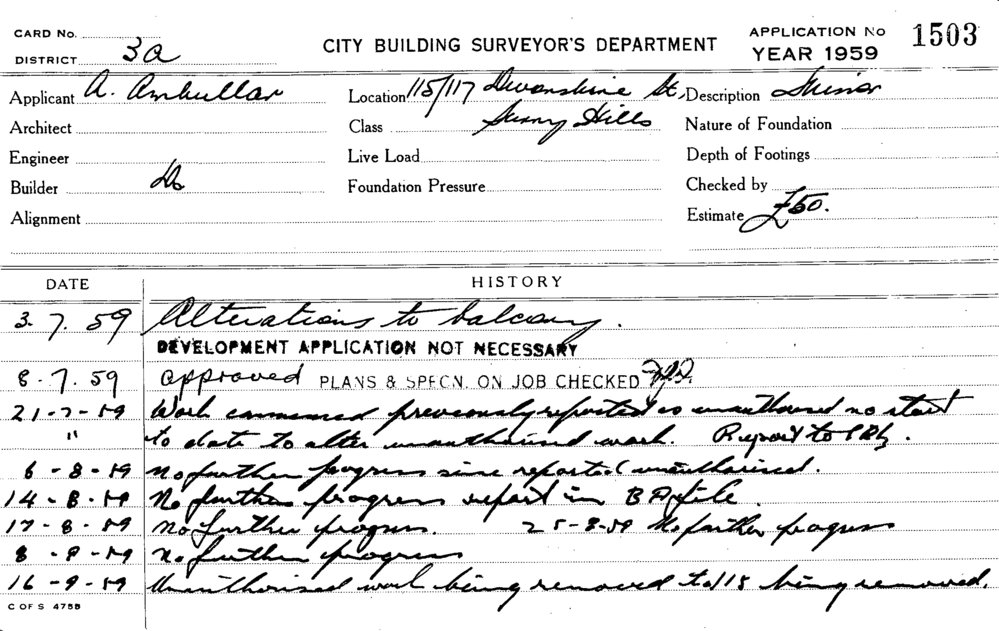 CARD No.
DISTRICT 3a
CITY BUILDING SURVEYOR'S DEPARTMENT
APPLICATION No 1503
YEAR 1959
Applicant A. Ambullar
Location 115/117 Devonshire St,
Description Minor
Architect
Class Surry Hills
Nature of Foundation
Engineer
Live Load
Depth of Footings
Builder Do
Foundation Pressure
Checked by
Alignment
Estimate £50.
DATE HISTORY
3. 7. 59 Alterations to balcony.
DEVELOPMENT APPLICATION NOT NECESSARY
8-7.59 approved PLANS & SPECN. ON JOB CHECKED
21-7-59 Work commenced previously reported as unauthorised no start
" to date to alter unauthorised work. Report to
6-8-59 No further progress since reported unauthorised.
14-8-59 No further progress report in BA file
17-8-59 No further progress. 25-8-59 No further progress
8-9-59 No further progress
16-9-59 Unauthorised work being removed being removed.
C OF S 475B